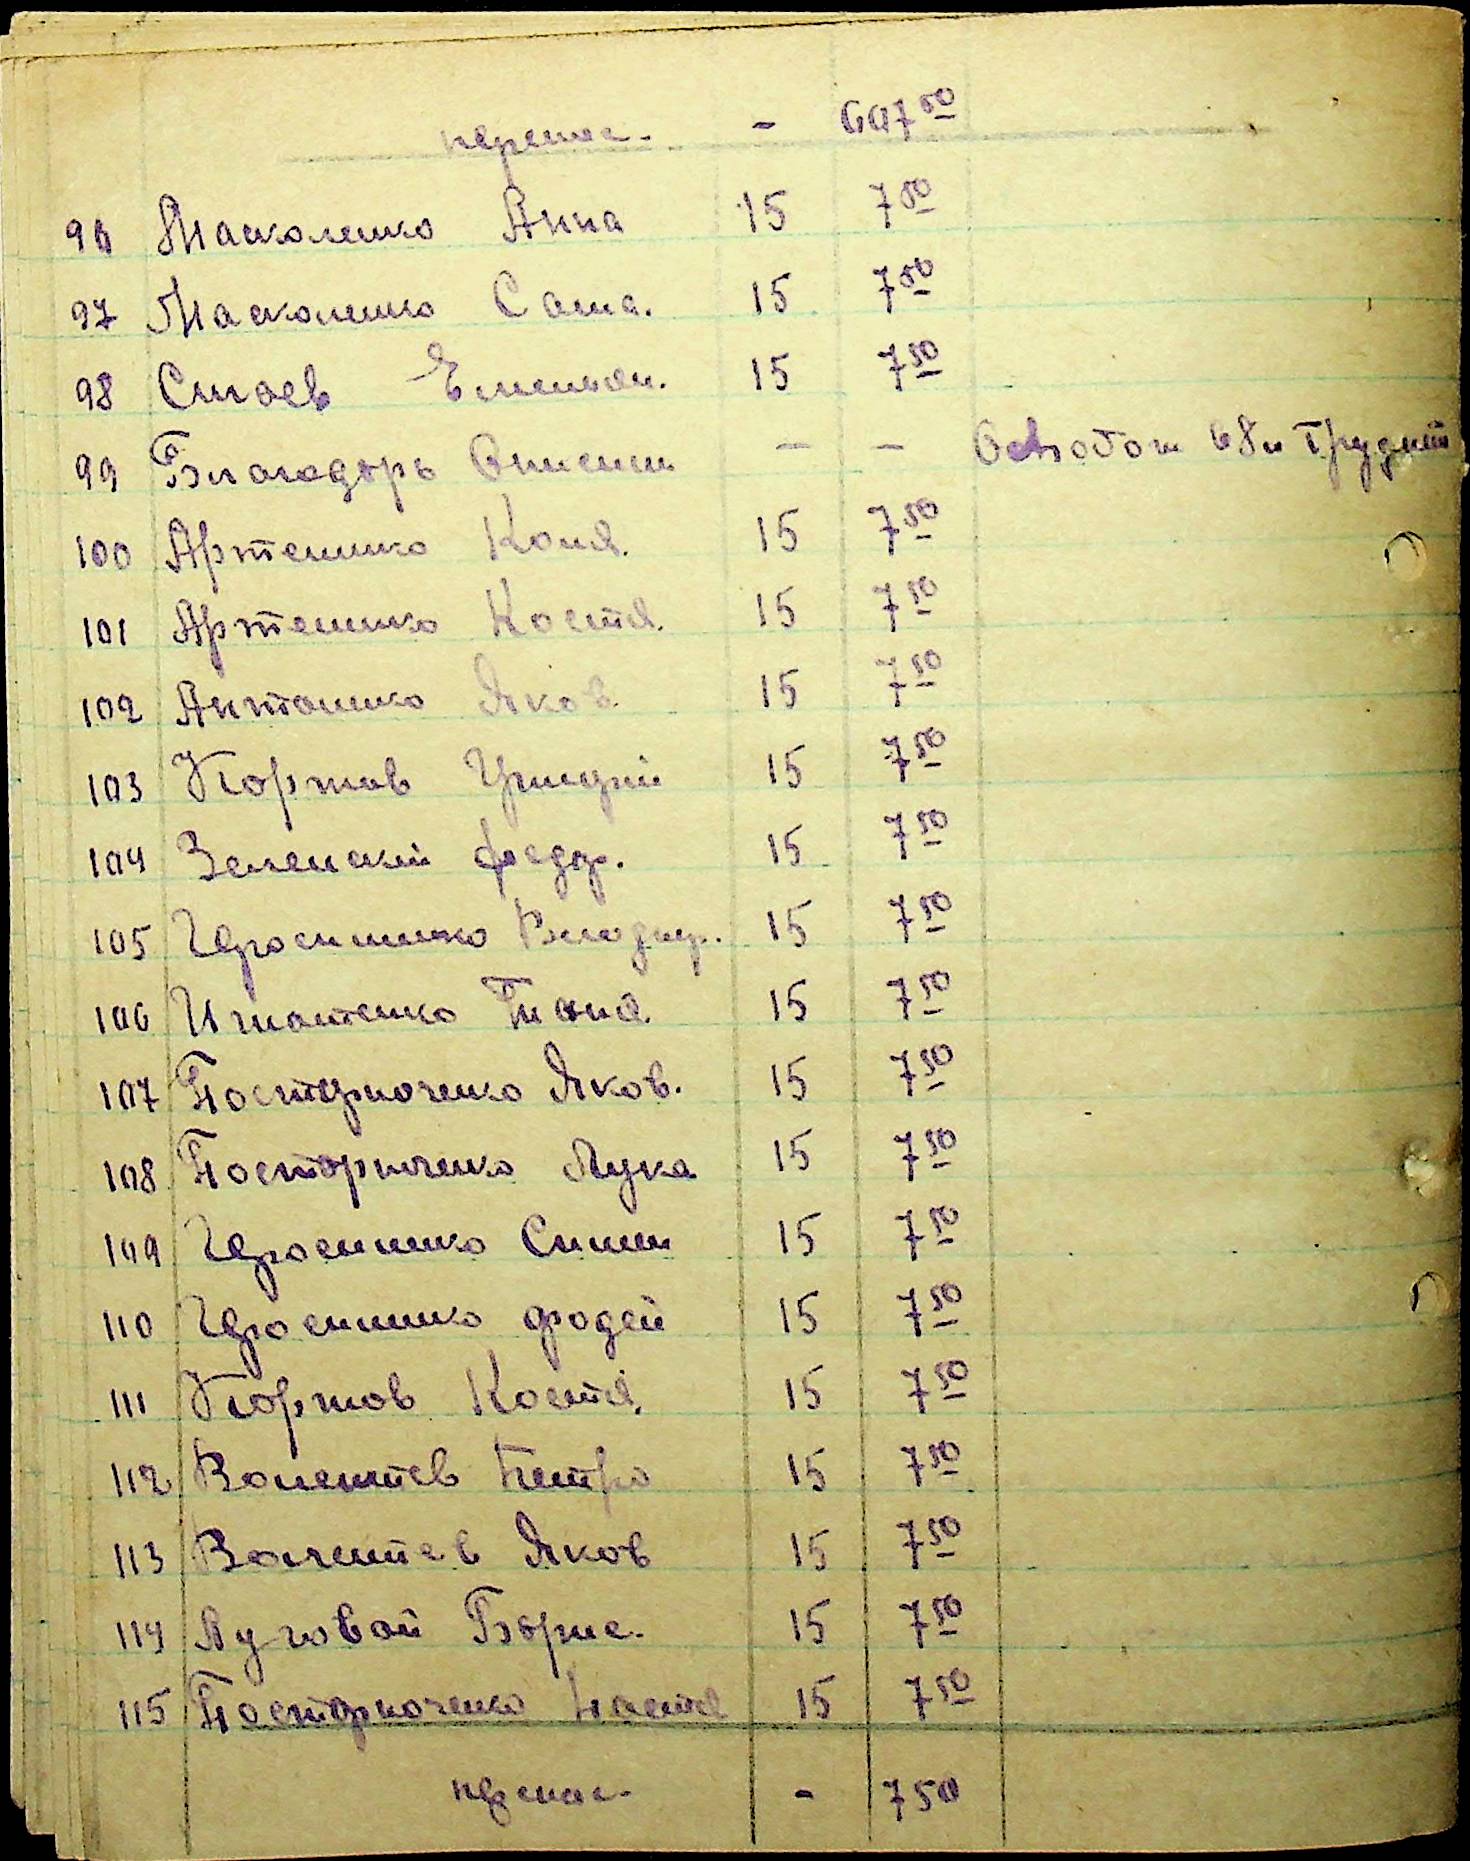 перенос. - 607 50
96 Маноленко Анна 15 7 50
97 Маноленко Саша. 15 7 50
98 Сигаев Емельян. 15 7 50
99 Благодарь - -
100 Артеменко Коля. 15 7 50
101 Артеменко Костя. 15 7 50
102 Антоненко Яков 15 7 50
103 Коржов 15 7 50
104 Зеленский Федор. 15 7 50
105 Герасименко Владимир. 15 7 50
106 Игнатенко Таня 15 7 50
107 Пастерначенко Яков. 15 7 50
108 Пастерначенко Лука 15 7 50
109 Герасименко Семен 15 7 50
110 Герасименко Фадей 15 7 50
111 Коржов Костя. 15 7 50
112 Валентев Петро 15 7 50
113 Валентев Яков 15 7 50
114 Луговой Борис. 15 7 50
115 Пастерначенко Настя 15 7 50
перенос. - 750